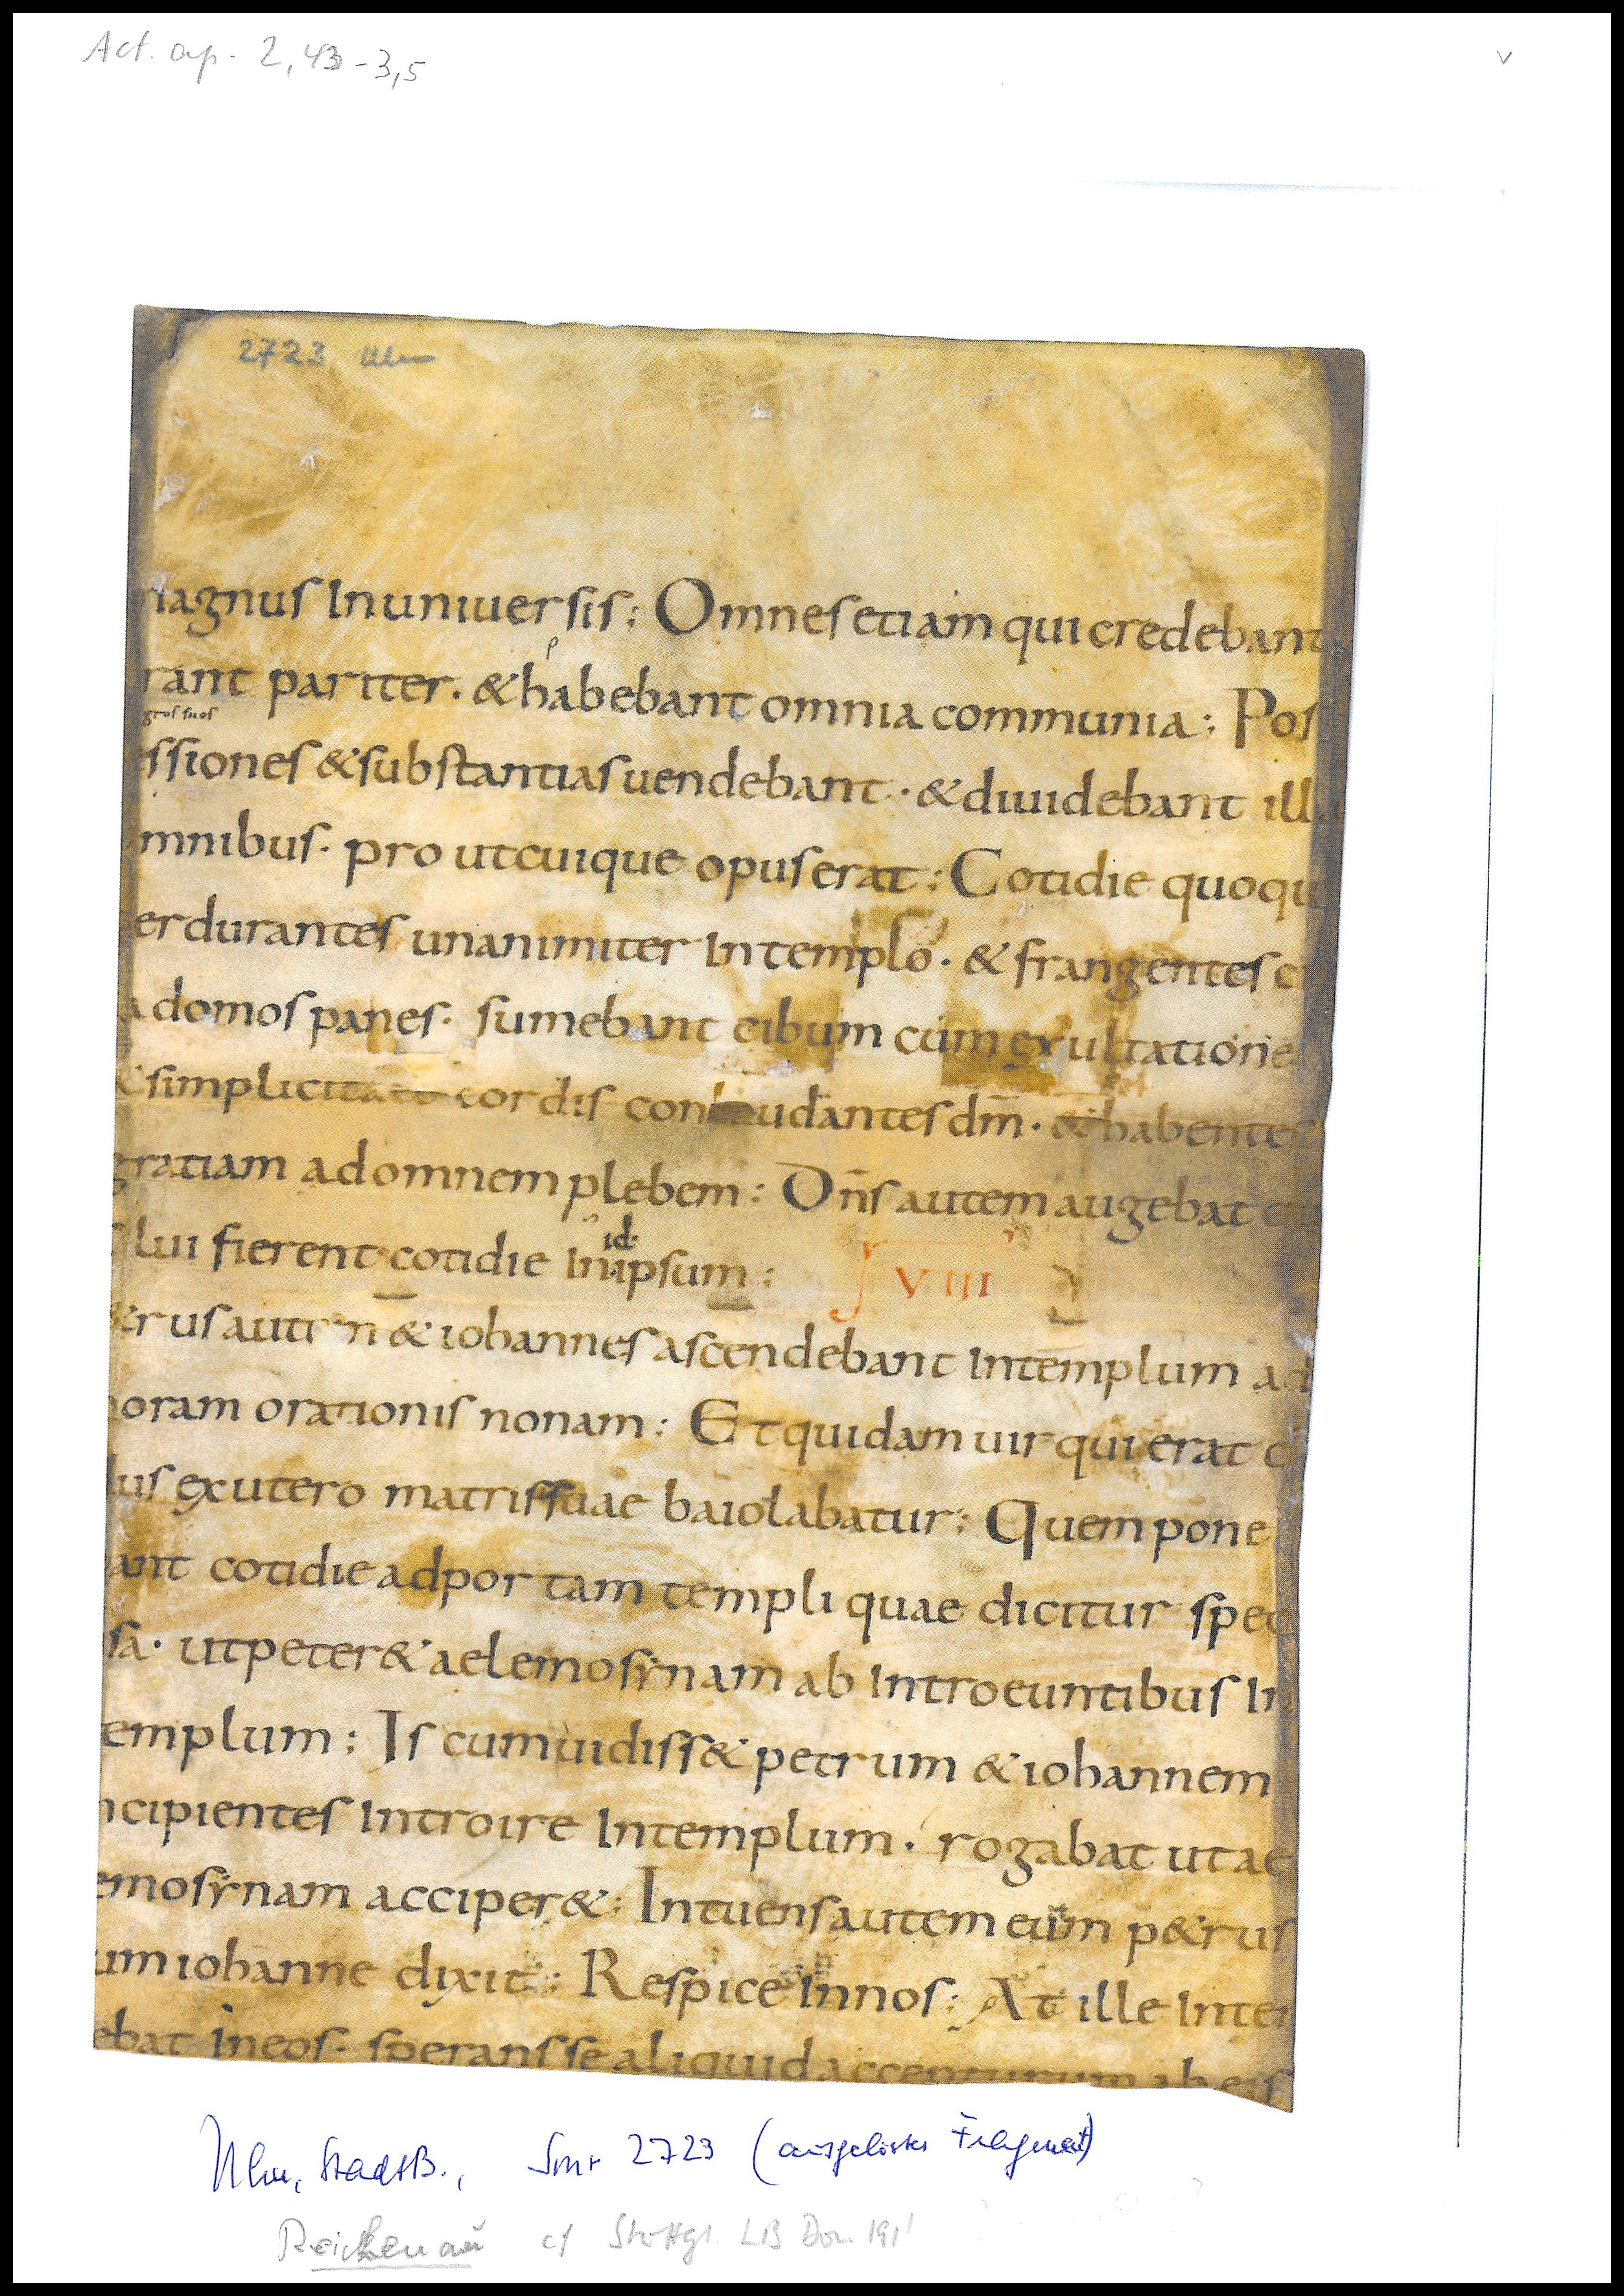 Act. ap. 2,43-3,5
v
2723 Ulm
magnus Inuniuersis; Omnes etiam qui credebant
rant pariter. & habebant omnia communia; Pos
gros suos
ssiones & substantias uendebant. & diuidebant ill
mnibus. pro ut cuique opus erat; Cotidie quoqu
erdurantes unanimiter In templo. & frangentes ci
a domos panes. sumebant cibum cum exultatione
& simplicitate cordis conlaudantes dm̄. & habentes
gratiam ad omnem plebem; Dn̄s autem augebat
id.
lui fierent cotidie In ipsum;
VIII
&rus autem & iohannes ascendebant Intemplum ad
horam orationis nonam; Et quidam uir qui erat c
dus ex utero matris suae baiolabatur; Quem pone
ant cotidie ad portam templi quae dicitur spec
sa. ut peter& aelemosynam ab Introeuntibus In
emplum; Is cum uidiss& petrum & iohannem
ncipientes Introire Intemplum. rogabat ut ae
emosynam acciper&; Intuens autem eum p&rus
um iohanne dixit; Respice In nos; At ille Inten
ebat In eos. sperans se aliquid accepturum ab eis
Ulm, StadtB., Smr 2723 (ausgelöstes Fragment)
Reichenau cf Stuttg. LB Don. 191